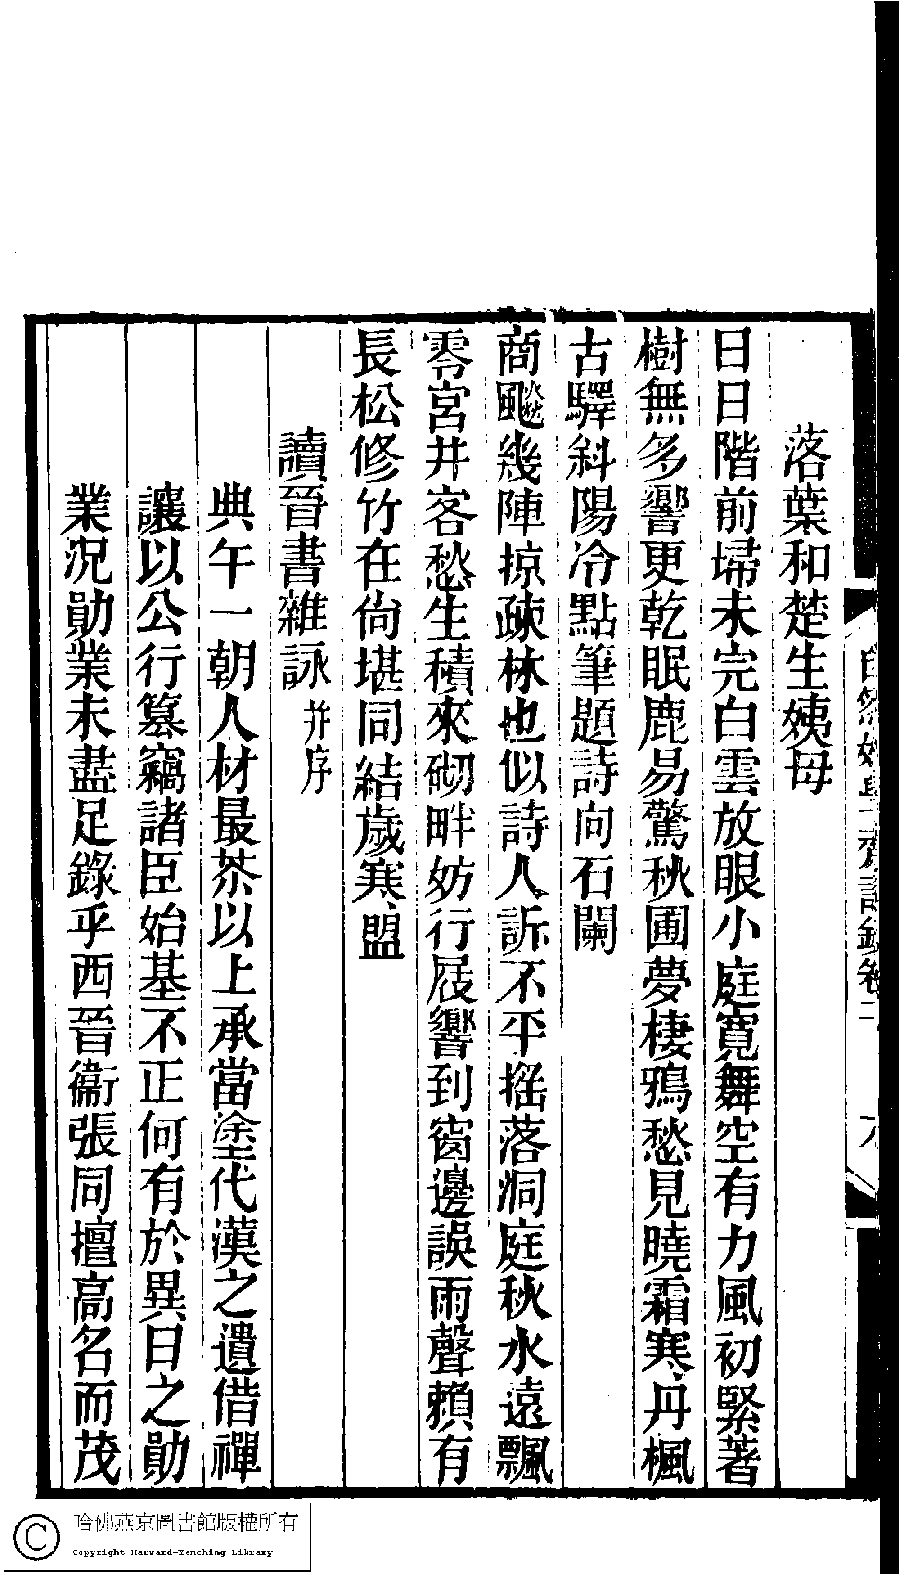 落葉和楚生姨母
日日階前埽未完白雲放眼小庭寬舞空有力風初緊著
樹無多響更乾眠鹿易驚秋圃夢棲鴉愁見曉霜寒丹楓
古驛斜陽冷點筆題詩向石闌
商飈幾陣掠疎林也似詩人訴不平搖落洞庭秋水遠飄
零宮井客愁生積來砌畔妨行屐響到窗邊誤雨聲賴有
長松修竹在尙堪同結歲寒盟
讀晉書雜詠并序
典午一朝人材最茶以上承當塗代漢之遺借禪
讓以公行篡竊諸臣始基不正何有於異日之勛
業況勛業未盡足錄乎西晉衞張同擅高名而茂
自然好學齋詩鈔卷二
哈佛燕京圖書館版權所有
Copyright Harvard-Yenching Library